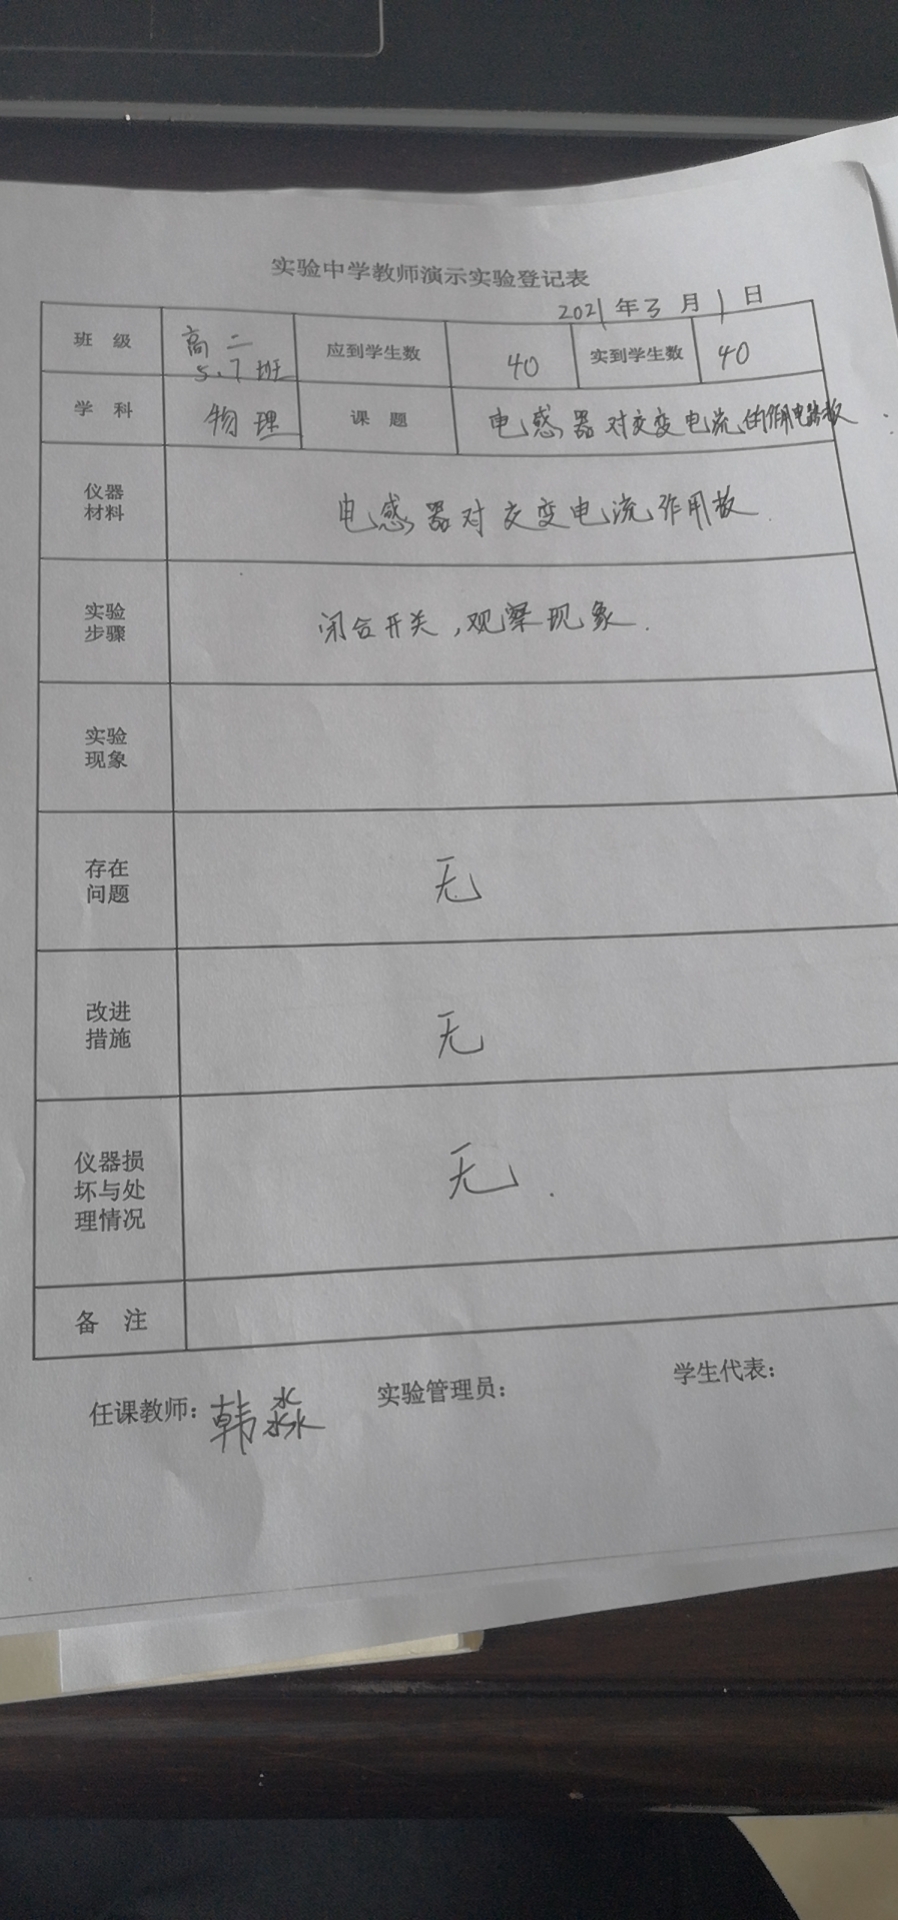 实验中学教师演示实验登记表
2021年3月1日
班 级 高二 5.7班 应到学生数 40 实到学生数 40
学 科 物理 课 题 电感器对交变电流的作用电路板
仪器
材料
电感器对交变电流作用板
实验
步骤
闭合开关,观察现象.
实验
现象
存在
问题
无
改进
措施
无
仪器损
坏与处
理情况
无.
备 注
任课教师:韩淼 实验管理员: 学生代表: